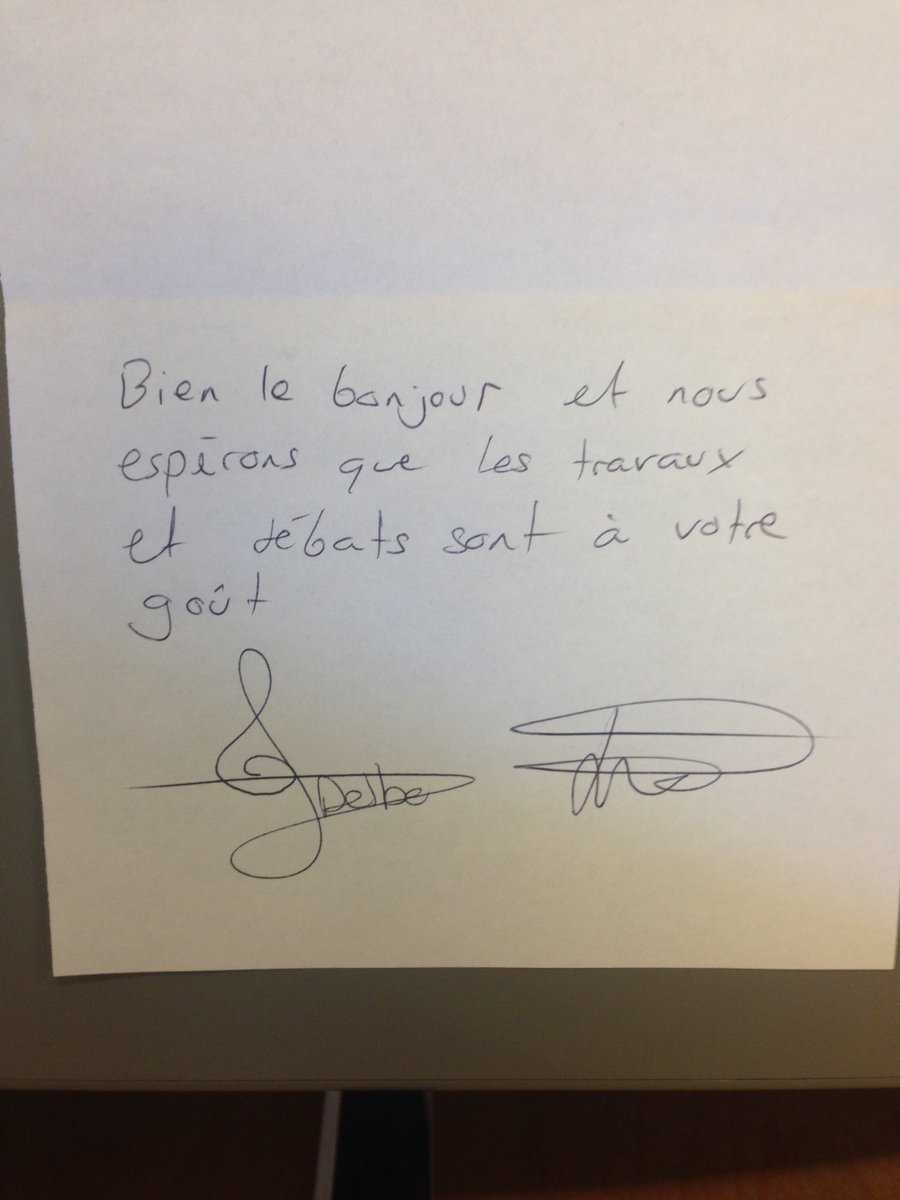 Bien le bonjour et nous
espérons que les travaux
et débats sont à votre
goût
Delbe